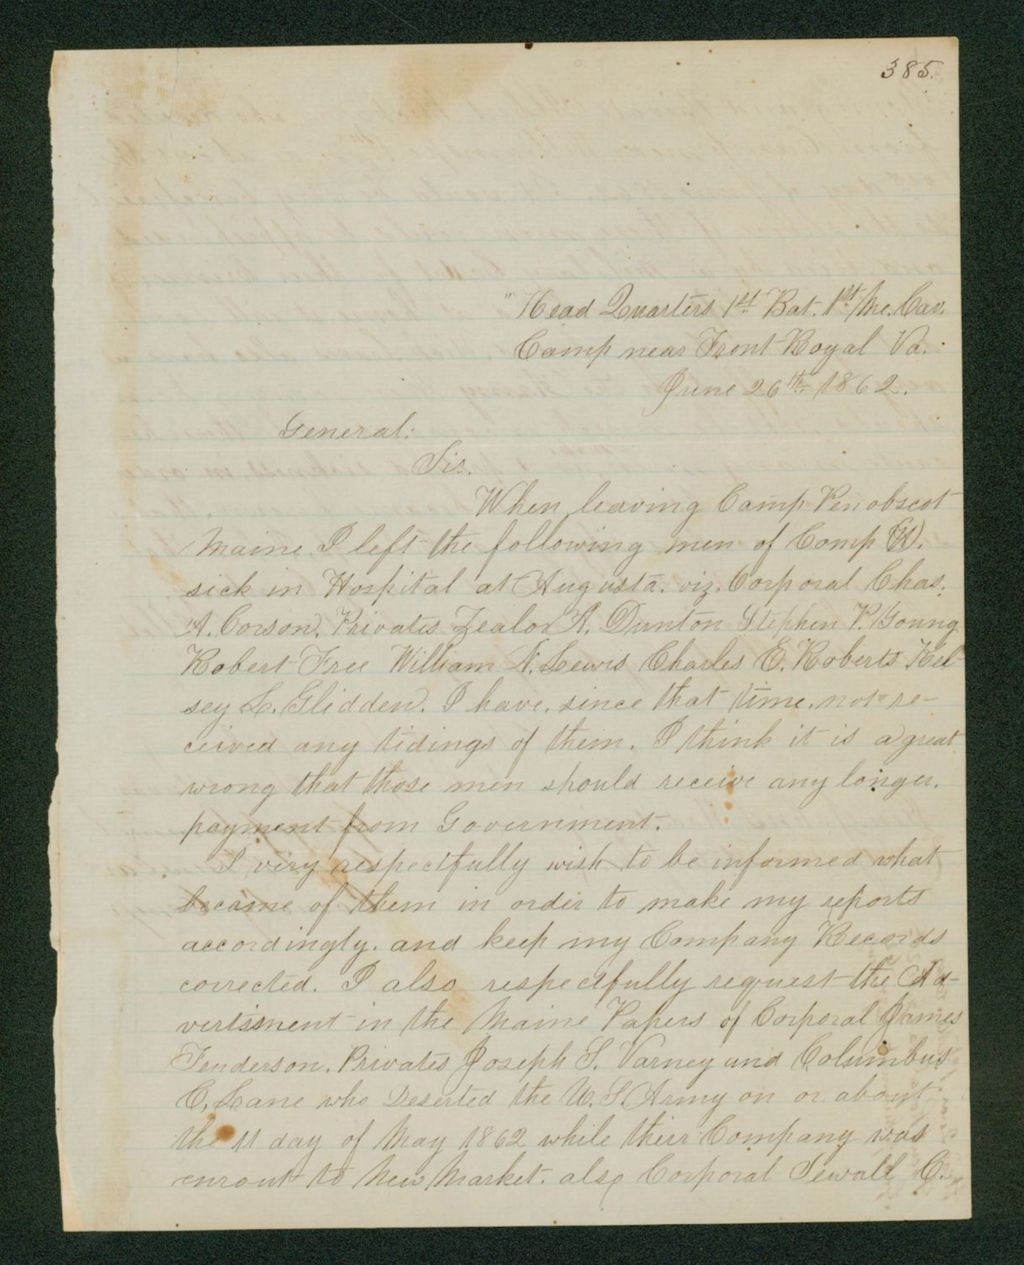 385.
"Head Quarters 1st Bat. 1st Me. Cav.
Camp near Front Royal Va.
June 26th 1862.
General:
Sir.
When leaving Camp Penobscot
Maine I left the following men of Comp
sick in Hospital at Augusta. viz. Corporal Chas.
A. Corson. Privates Zealor A. Dunton Stephen P. Young
Robert Free William N. Lewis Charles E. Roberts Kel-
sey L. Glidden. I have, since that time, not re-
ceived any tidings of them. I think it is a great
wrong that those men should receive any longer.
payment from Government.
I very respectfully wish to be informed what
became of them in order to make my reports
accordingly. and keep my Company Records
corrected. I also respectfully request the Ad-
vertisment in the Maine Papers of Corporal James
Fenderson. Privates Joseph S. Varney and Columbus
C. Lane who Deserted the U.S Army on or about
the 11 day of May 1862 while their Company was
enrout to New Market. also Corporal Sewall C.